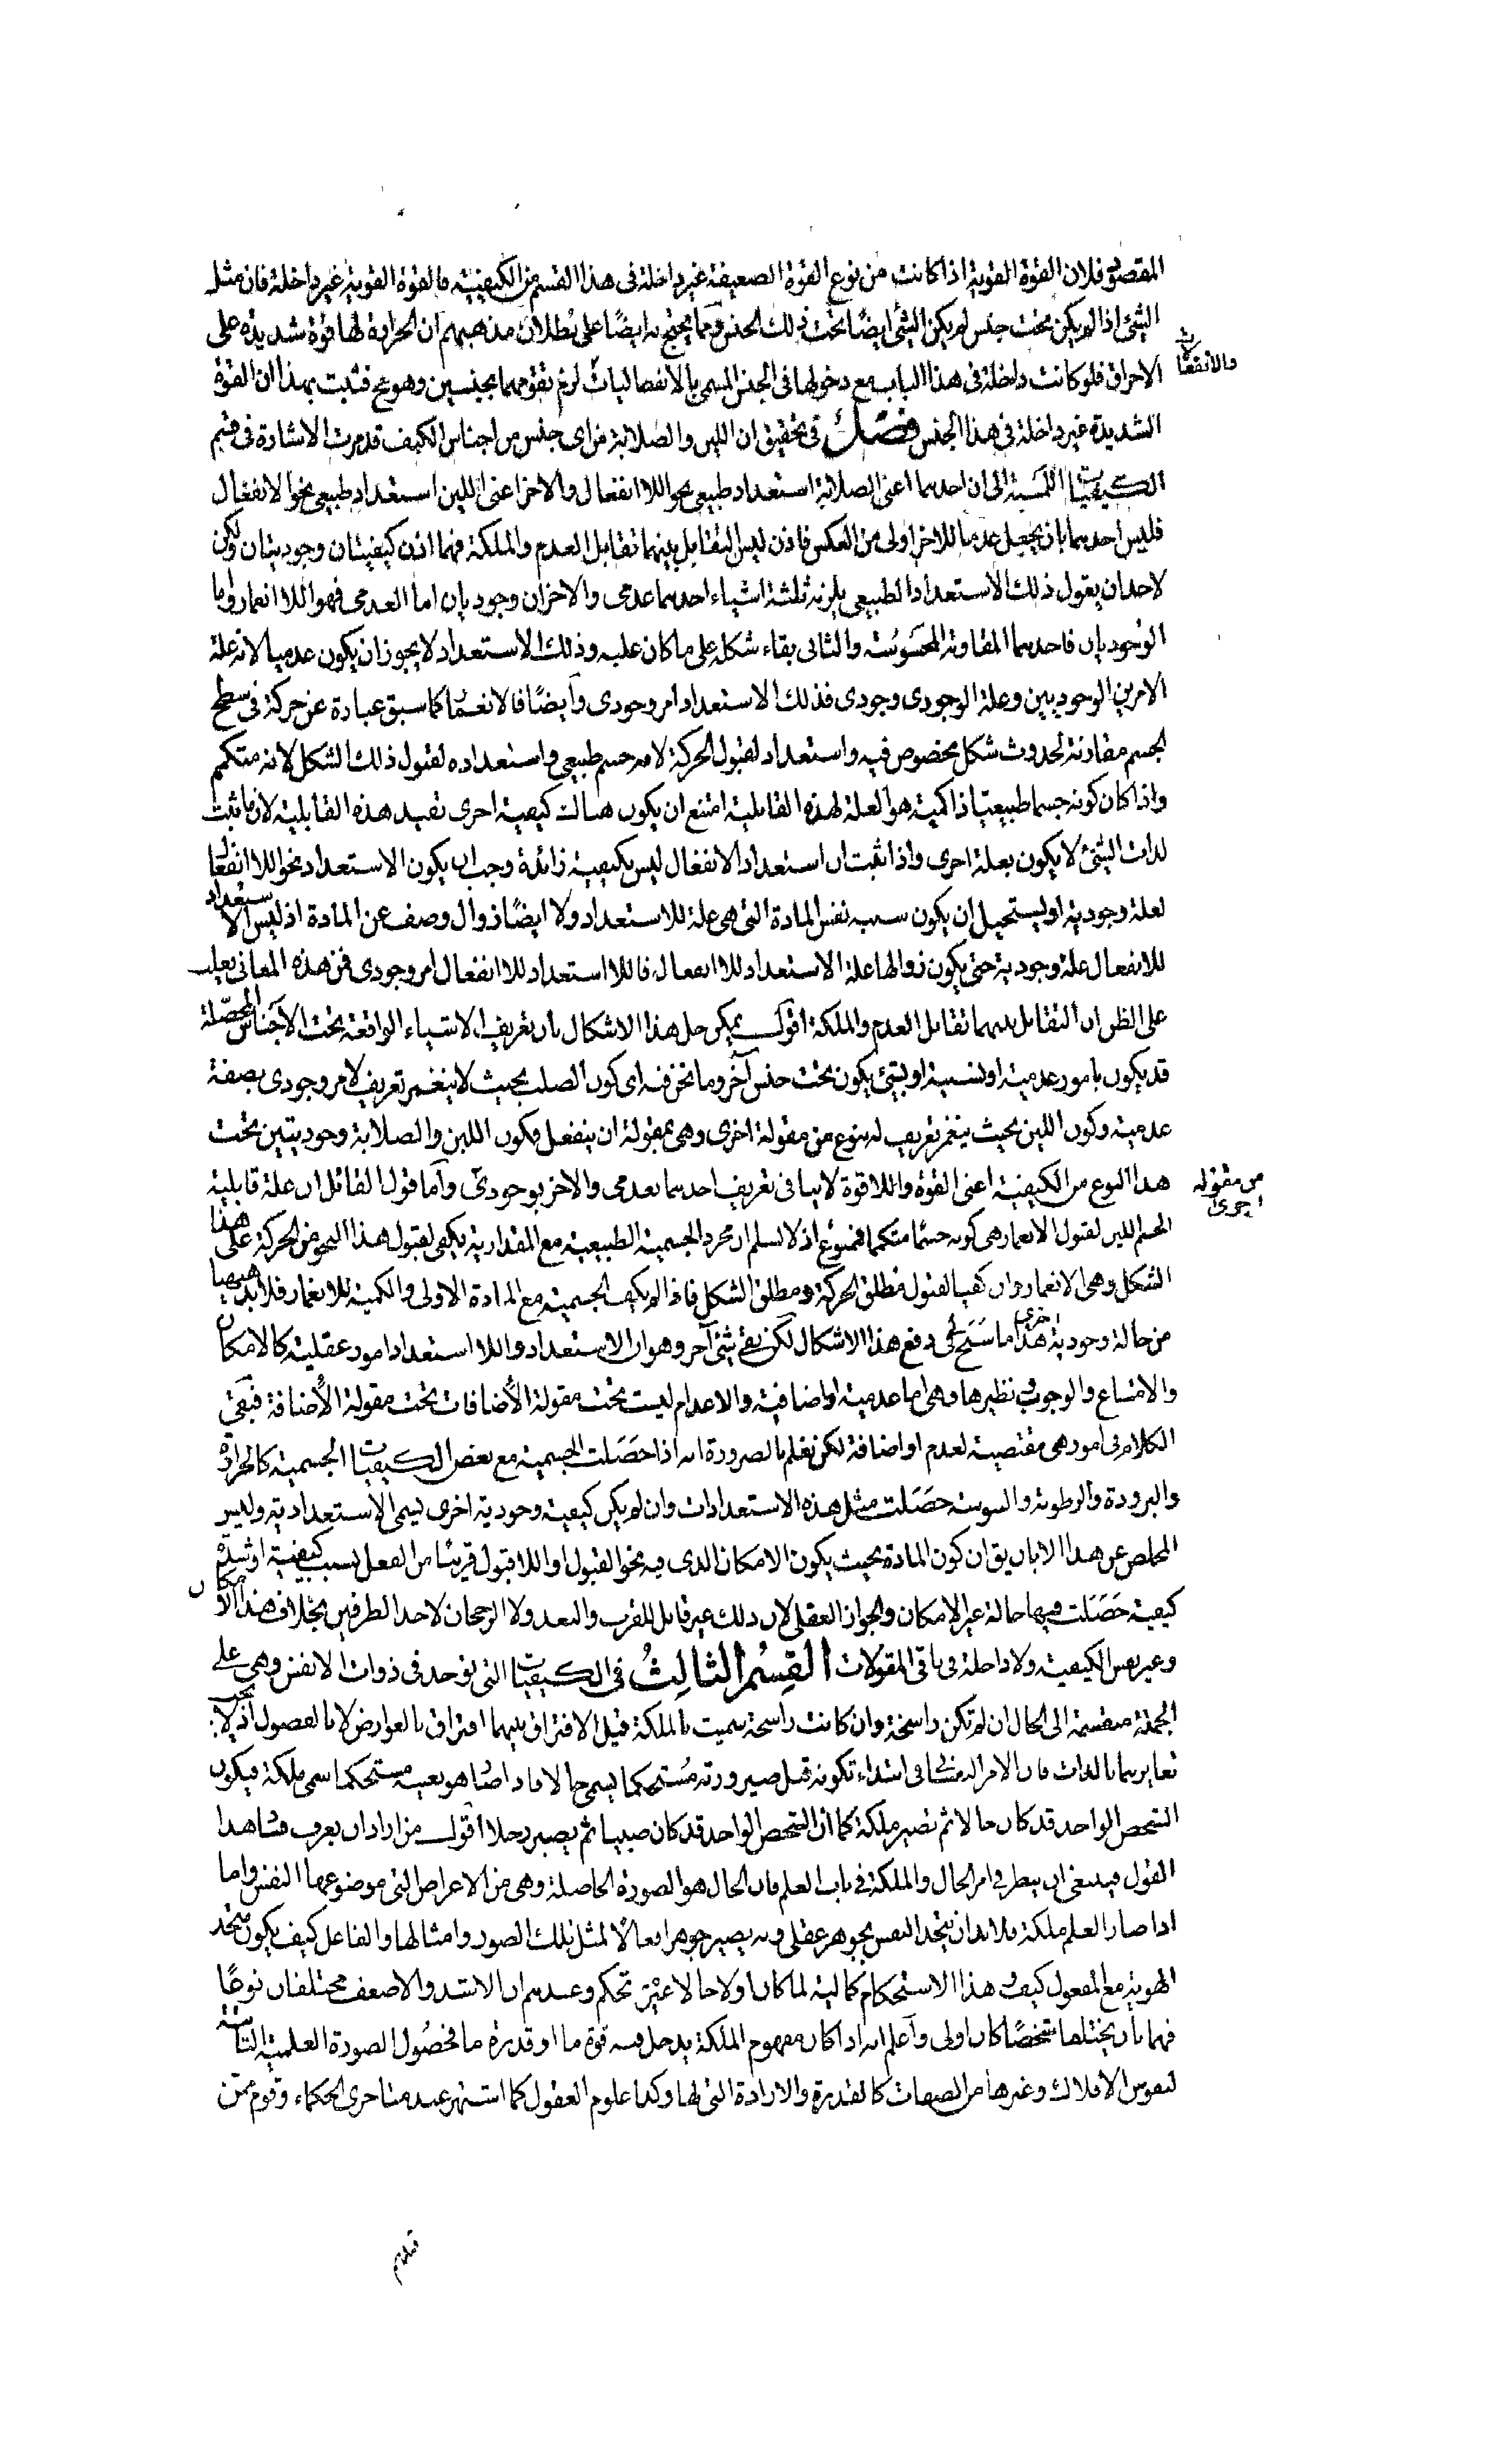 المقصود فلان القوة القوية اذا كانت من نوع القوة الضعيفة غير داخلة فى هذا القسم من الكيفية فالقوة القوية غير داخلة فان مثل
الشئ اذا لم يكن تحت جنس لم يكن الشئ ايضًا تحت ذلك الجنس ومما يحتج به ايضًا على بُطلان مذهبهم ان الحرارة لها قوة شديدة على
الاحراق فلو كانت داخلة فى هذا الباب مع دخولها فى الجنس المسمى بالانفعاليات
والانفعالات
لزم تقومهما بجنسين وهو مح فثبت بهذا ان القوة
الشديدة غير داخلة فى هذا الجنس فصل فى تحقيق ان اللين والصلابة من اى جنس من اجناس الكيف قد مرت الاشارة فى قسم
الكيفيات اللمسية الى ان احدهما اعنى الصلابة استعداد طبيعى نحو اللاانفعال والاخر اعنى اللين استعداد طبيعى نحو الانفعال
فليس احدهما بان يجعل عدما للاخر اولى من العكس فاذن ليس التقابل بينهما تقابل العدم والملكة فهما اذن كيفيتان وجوديتان ولكن
لاحد ان يقول ذلك الاستعداد الطبيعى يلزمه ثلثة اشياء احدهما عدمى والاخران وجوديان اما العدمى فهو اللاانغمار واما
الوجوديان فاحدهما المقاومة المحسوسة والثانى بقاء شكله على ما كان عليه وذلك الاستعداد لا يجوز ان يكون عدميا لانه علة
الامرين الوجوديين وعلة الوجودى وجودى فذلك الاستعداد امر وجودى وايضًا فالانغمار كما سبق عبارة عن حركة فى سطح
الجسم مقارنة لحدوث شكل مخصوص فيه واستعداد لقبول الحركة لانه جسم طبيعى واستعداده لقبول ذلك الشكل لانه متكمم
واذا كان كونه جسما طبيعيا ذا كمية هو العلة لهذه القابلية امتنع ان يكون هناك كيفية اخرى تفيد هذه القابلية لان ما ثبت
لذات الشئ لا يكون بعلة اخرى واذا ثبت ان استعداد الانفعال ليس بكيفية زائدة وجب ان يكون الاستعداد نحو اللاانفعال
لعلة وجودية او يستحيل ان يكون سببه نفس المادة التى هى علة للاستعداد ولا ايضًا زوال وصف عن المادة اذ ليس الاستعداد
للانفعال علة وجودية حتى يكون زوالها علة الاستعداد للاانفعال فاللااستعداد للاانفعال امر وجودى فمن هذه المعانى يغلب
على الظن ان التقابل بينهما تقابل العدم والملكة اقول يمكن حل هذا الاشكال بان تعريف الاشياء الواقعة تحت الاجناس المحصّلة
قد يكون بامور عدمية او نسبية او بشئ يكون تحت جنس آخر وما نحن فيه اى كون الصلب بحيث لا ينغمر تعريف لامر وجودى بصفة
عدمية وكون اللين بحيث ينغمر تعريف له بنوع من مقولة اخرى وهى مقولة ان ينفعل فكون اللين والصلابة وجوديتين تحت
هذا النوع من الكيفية اعنى القوة واللاقوة لا ينافى تعريف احدهما بعدمى والاخر بوجودى
من مقوله
اخرى
واما قول القائل ان علة قابلية
الجسم اللين لقبول الانغمار هى كونه جسمًا متكمما فممنوع اذ لا نسلم ان مجرد الجسمية الطبيعية مع المقدارية يكفى لقبول هذا النحو من الحركة على هذا
الشكل وهى الانغمار وان كفيا لقبول مطلق الحركة ومطلق الشكل فاذا لم يكف الجسمية مع المادة الاولى والكمية للانغمار فلا بد ههنا
من حالة وجودية اخرى هذا ما سنح لى فى دفع هذا الاشكال لكن بقى شئ آخر وهو ان الاستعداد واللااستعداد امور عقلية كالامكان
والامتناع والوجوب ونظيرها وهى اما عدمية او اضافية والاعدام ليست تحت مقولة والاضافات تحت مقولة الاضافة فبقى
الكلام فى امور هى مقتضية لعدم او اضافة لكن نعلم بالضرورة انه اذا حصَلت الجسمية مع بعض الكيفيات الجسمية كالحرارة
والبرودة والرطوبة واليبوسة حصَلت مثل هذه الاستعدادات وان لم يكن كيفية وجودية اخرى تسمى الاستعدادية وليس
المخلص عن هذا الا بان يق ان كون المادة بحيث يكون الامكان الذى فيه نحو القبول او اللاقبول قريبًا من الفعل بسبب كيفية او شدة
كيفية حصَلت فيها حالة غير الامكان والجواز العقلى لان ذلك غير قابل للقرب والبعد ولا الرجحان لاحد الطرفين بخلاف هذا الامكان
وغير نفس الكيفية ولا داخلة فى باقى المقولات القسم الثالث فى الكيفيات التى توجد فى ذوات الانفس وهى على
الجملة منقسمة الى الحال ان لم تكن راسخة وان كانت راسخة سميت بالملكة قيل الافتراق بينهما افتراق بالعوارض لا بالفصول اذ لا يجب
تغايرهما بالذات فان الامر النفسانى فى ابتداء تكونه قبل صيرورته مستحكما يسمى حالا فاذا صار هو بعينه مستحكما سمى ملكة فيكون
الشخص الواحد قد كان حالا ثم تصير ملكة كما أن الشخص الواحد قد كان صبيا ثم يصير رجلا اقول من اراد ان يعرف فساد هذا
القول فينبغى ان ينظر فى امر الحال والملكة فى باب العلم فان الحال هو الصورة الحاصلة وهى من الاعراض التى موضوعها النفس واما
اذا صار العلم ملكة فلا بد ان يتحد النفس بجوهر عقلى وبه يصير جوهرا فعالًا لمثل تلك الصور وامثالها والفاعل كيف يكون متحد
الهوية مع المفعول كيف وهذا الاستحكام كمالية لما كان اولا حالا عين تحكم وعندهم ان الاشد والاضعف مختلفان نوعًا
فهما بان يختلفا شخصًا كان اولى واعلم انه اذا كان مفهوم الملكة يدخل فيه قوة ما او قدرة ما فحصُول الصورة العلمية الثابتة
لنفوس الافلاك وغيرها من الصفات كالقدرة والارادة التى لها وكذا علوم العقول كما اشتهر عند متاخرى الحكماء وقوم ممّن